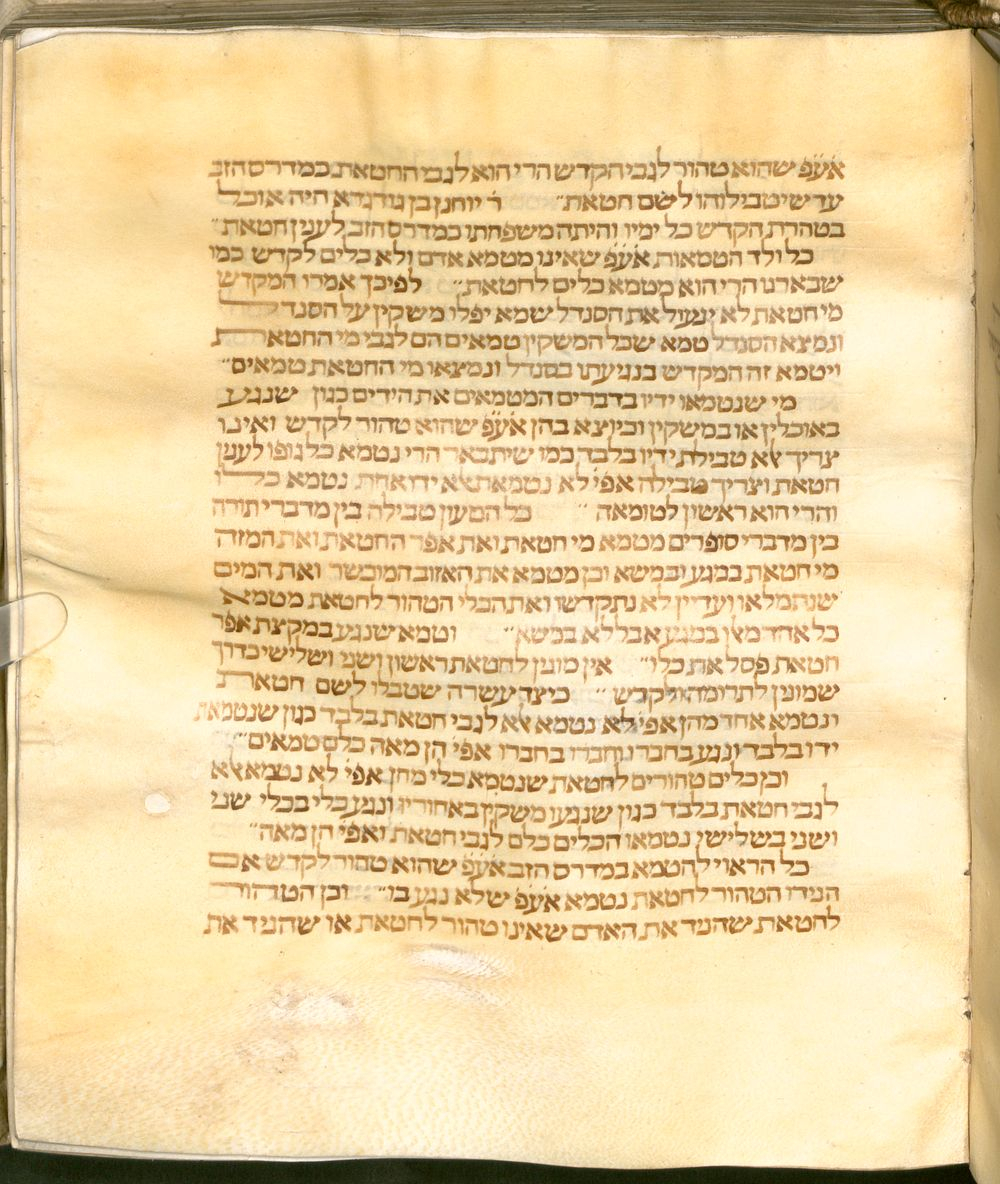 אע֗פ֗ שהוא טהור לגבי הקדש הרי הוא לגבי החטאת כמדרס הזב
עד שיטבילוהו לשם חטאת״ ר֗ יוחנן בן גודגדא היה אוכל
בטהרת הקדש כל ימיו והיתה משפחתו כמדרס הזב לענין חטאת״
כל ולד הטמאות אע֗פ֗ שאינו מטמא אדם ולא כלים לקדש כמו
שבארנו הרי הוא מטמא כלים לחטאת״ לפיכך אמרו המקדש
מי חטאת לא ינעול את הסנדל שמא יפלו משקין על הסנדל
ונמצא הסנדל טמא שכל המשקין טמאים הם לגבי מי החטאת
ויטמא זה המקדש בנגיעתו בסנדל ונמצאו מי החטאת טמאים״
מי שנטמאו ידיו בדברים המטמאים את הידים כגון שנגע
באוכלין או במשקין וכיוצא בהן אע֗פ֗ שהוא טהור לקדש ואינו
צריך אלא טבילת ידיו בלבד כמו שיתבאר הרי נטמא כל גופו לענין
חטאת וצריך טבילה אפי֗ לא נטמאת אלא ידו אחת נטמא כלו
והרי הוא ראשון לטומאה ״ כל הטעון טבילה בין מדברי תורה
בין מדברי סופרים מטמא מי חטאת ואת אפר החטאת ואת המזה
מי חטאת במגע ובמשא וכן מטמא את האזוב המוכשר ואת המים
שנתמלאו ועדיין לא נתקדשו ואת הכלי הטהור לחטאת מטמא
כל אחד מהן במגע אבל לא במשא״ וטמא שנגע במקצת אפר
חטאת פסל את כלו״ אין מונין לחטאת ראשון ושני ושלישי כדרך
שמונין לתרומה ולקדש״ כיצד עשרה שטבלו לשם חטאת
ונטמא אחד מהן אפי֗ לא נטמא אלא לגבי חטאת בלבד כגון שנטמאת
ידו בלבד ונגע בחברו וחברו בחברו אפי֗ הן מאה כלם טמאים״
וכן כלים טהורים לחטאת שנטמא כלי מהן אפי֗ לא נטמא אלא
לגבי חטאת בלבד כגון שנגעו משקין באחוריו ונגע כלי בכלי שני
ושני בשלישי נטמאו הכלים כלם לגבי חטאת ואפי֗ הן מאה״
כל הראוי להטמא במדרס הזב אע֗פ֗ שהוא טהור לקדש אם
הנידו הטהור לחטאת נטמא אע֗פ֗ שלא נגע בו״ וכן הטהור
לחטאת שהניד את האדם שאינו טהור לחטאת או שהניד את